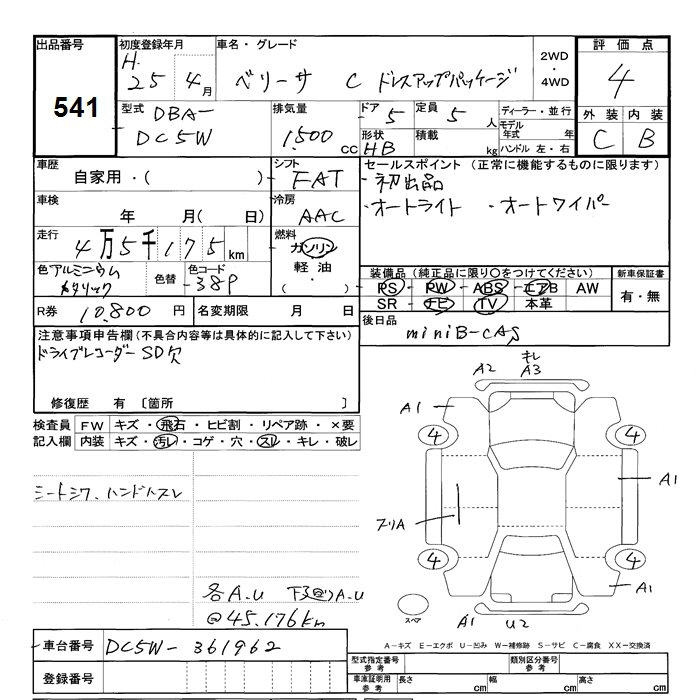 出品番号
541
初度登録年月
H. 25 4月
車名・グレード
ベリーサ C ドレスアップパッケージ
2WD
4WD
評価点
4
外装 内装
C B
型式
DBA-
DC5W
排気量
1500 cc
ドア 5
定員 5 人
形状 HB
積載 kg
ディーラー・並行
モデル年式 年
ハンドル 左・右
車歴
自家用・( )
シフト
FAT
セールスポイント (正常に機能するものに限ります)
・初出品
・オートライト ・オートワイパー
車検
年 月( 日)
冷房
AAC
走行
4万5千175km
燃料
ガソリン
軽油
( )
色 アルミニウム
メタリック
色替
色コード
38P
装備品 (純正品に限り○をつけてください)
PS PW ABS エアB AW
SR ナビ TV 本革
新車保証書
有・無
R券 10,800円
名変期限 月 日
後日品
miniB-CAS
注意事項申告欄 (不具合内容等は具体的に記入して下さい)
ドライブレコーダーSD欠
修復歴 有 〔箇所 〕
検査員
記入欄
FW キズ・飛石・ヒビ割・リペア跡・×要
内装 キズ・汚レ・コゲ・穴・スレ・キレ・破レ
シートシワ、ハンドルスレ
各A.U 下廻りA.U
@45.176km
A2
キレ
A3
A1
4
4
A1
フリA
4
4
A1
スペア
A1
U2
車台番号 DC5W-361962
登録番号
A-キズ E-エクボ U-凹み W-補修跡 S-サビ C-腐食 XX-交換済
型式指定番号
参考
類別区分番号
参考
車庫証明用
参考
長さ cm
幅 cm
高さ cm